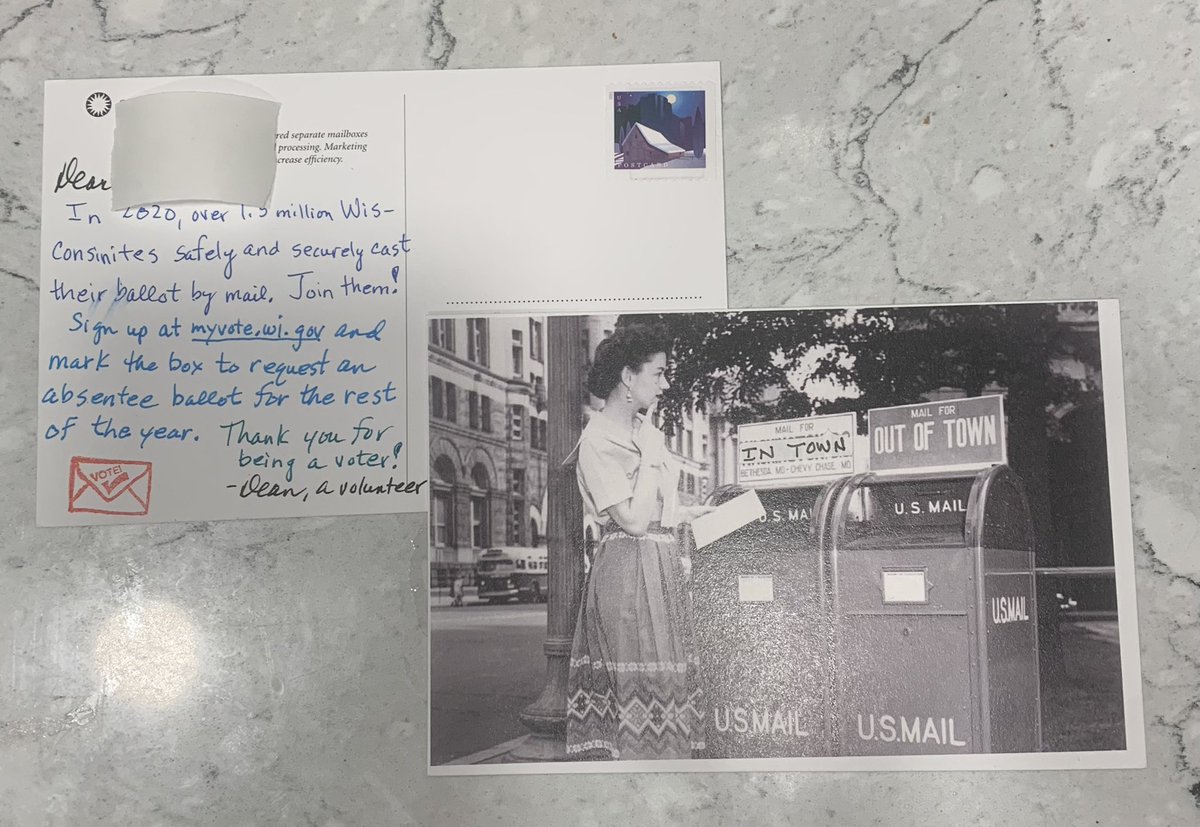 red separate mailboxes
processing. Marketing
crease efficiency.
Dear
In 2020, over 1.3 million Wis-
consinites safely and securely cast
their ballot by mail. Join them!
Sign up at myvote.wi.gov and
mark the box to request an
absentee ballot for the rest
of the year. Thank you for
being a voter!
-Dean, a volunteer
VOTE!
USA
POSTCARD
MAIL FOR
IN TOWN
BETHESDA, MD-CHEVY CHASE, MD.
MAIL FOR
OUT OF TOWN
U.S. MAIL
U.S. MAIL
U.S.MAIL
U.S.MAIL
U.S.MAIL